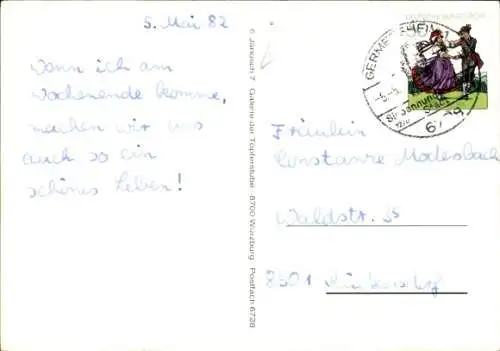 5. Mai 82
Wenn ich am
Wochenende komme,
machen wir uns
auch so ein
schönes Leben!
6 Janusch 7 Galerie der Topfenstube 8700 Würzburg Postfach 6728
GERMERSHEIM
-5.-5.
6729
Fräulein
Constanze Modesbach
Waldstr. 35
8501